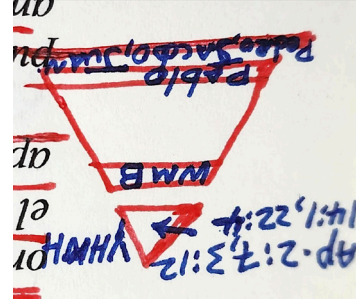 Ap. 2:7, 3:12
14:1, 22:4
YHWH
WMB
Pablo
Pedro, Jacobo, Juan